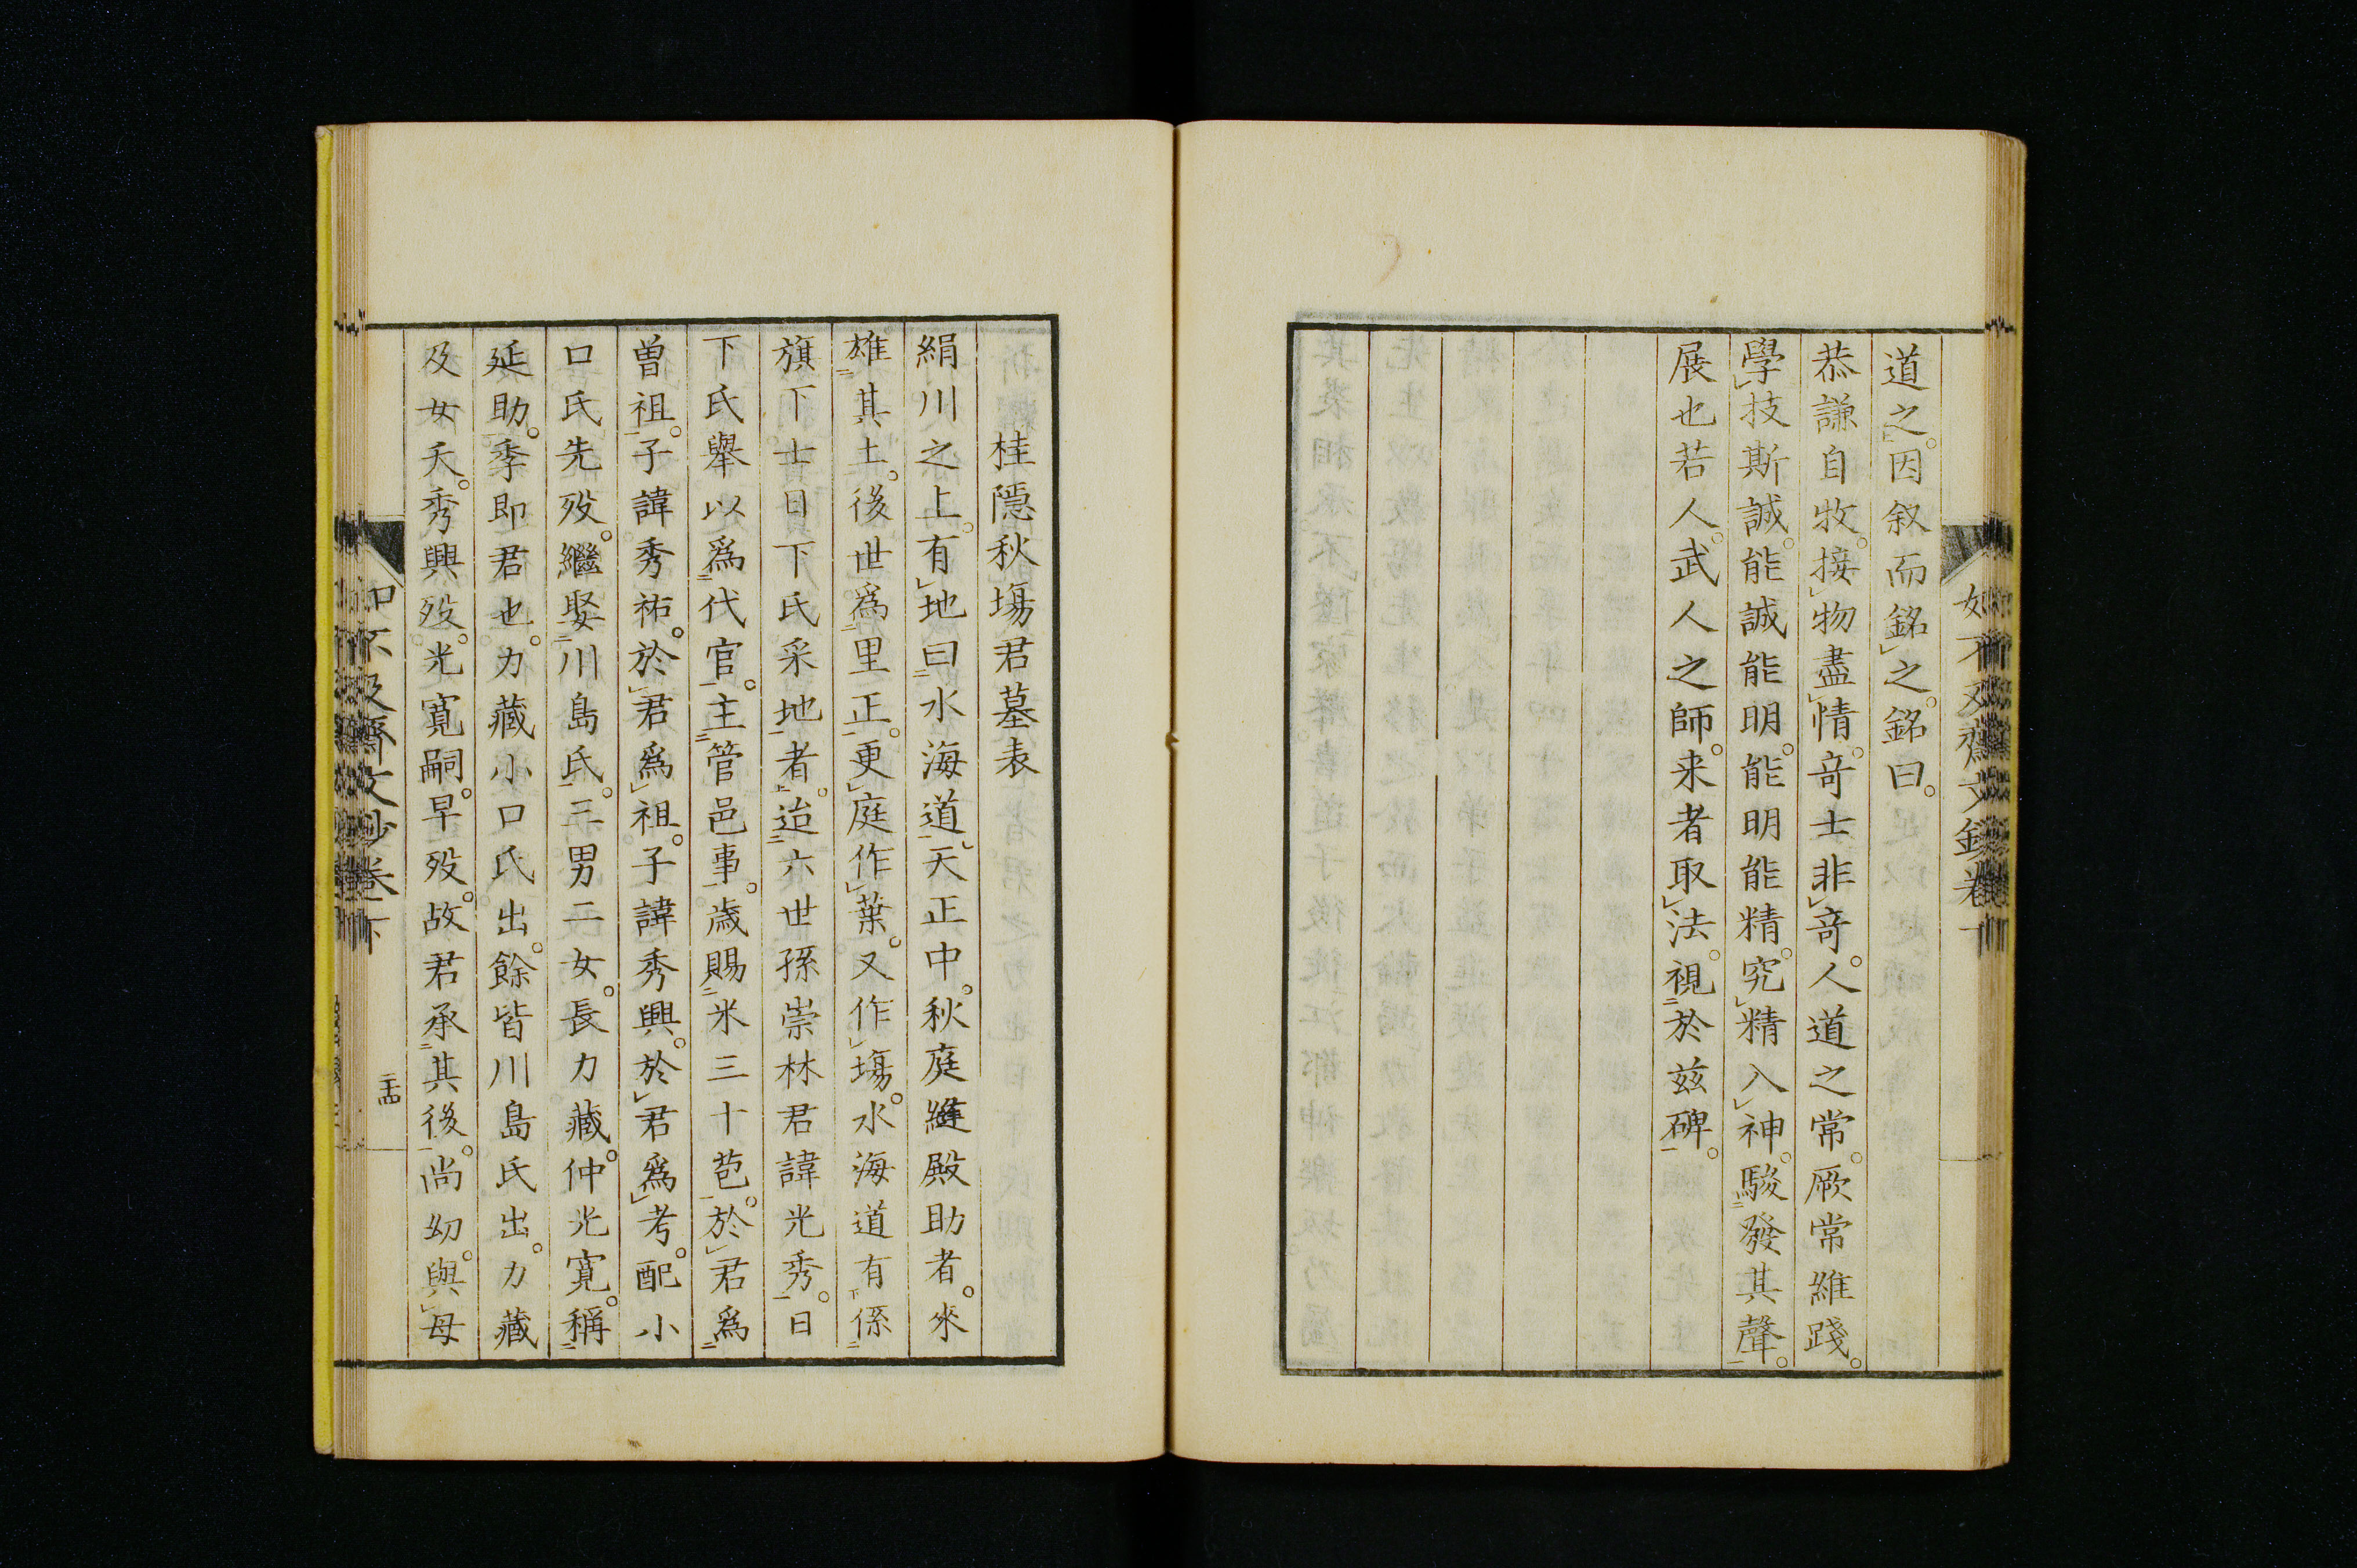 道之。因叙而銘之。銘曰。
恭謙自牧。接物盡情。竒士非竒。人道之常。厥常維踐。
學技斯誠。能誠能明。能明能精。究精入神。駿發其聲。
展也若人。武人之師。来者取法。視於玆碑。
桂隱秋塲君墓表
絹川之上。有地曰水海道。天正中。秋庭縫殿助者。來
雄其土。後世爲里正。更庭作葉。又作塲。水海道有係
旗下士日下氏采地者。迨六世孫崇林君諱光秀。日
下氏擧以爲代官。主管邑事。歳賜米三十苞。於君爲
曽祖。子諱秀祐。於君爲祖。子諱秀興。於君爲考。配小
口氏先歿。繼娶川島氏。二男二女。長力藏。仲光寛。稱
延助。季即君也。力藏小口氏出。餘皆川島氏出。力藏
及女夭。秀興歿。光寛嗣。早歿。故君承其後。尚幼。與母
如不及齋文鈔卷下